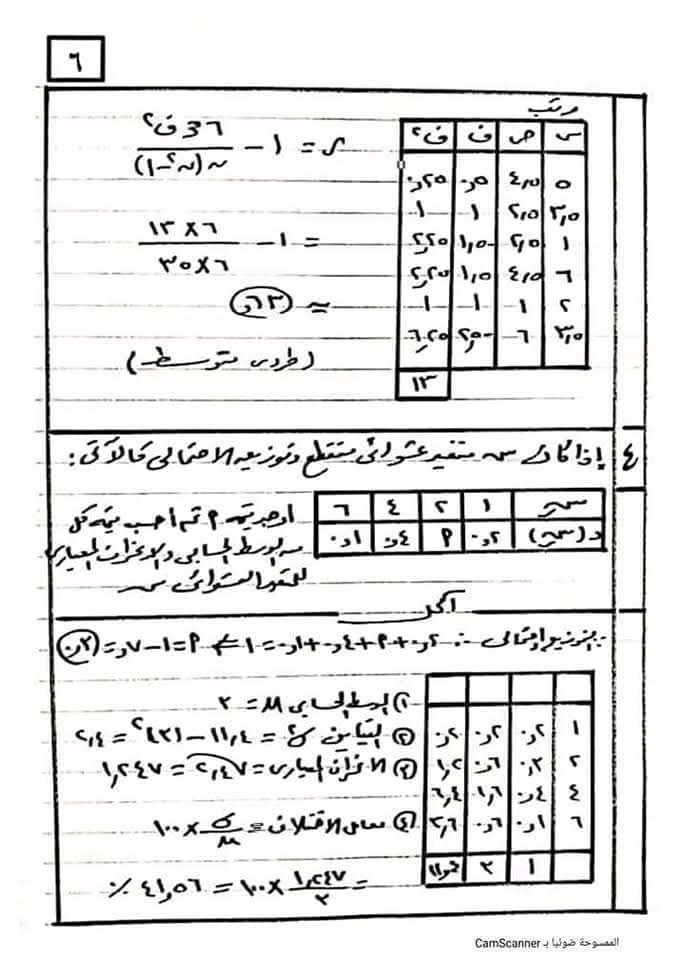 ٦
رتب
س ص ف ف٢
٥ ٤,٥ ٠,٥ ٠,٢٥
٣,٥ ٢,٥ ١ ١
١ ٢,٥ -١,٥ ٢,٢٥
٦ ٤,٥ ١,٥ ٢,٢٥
٢ ١ ١ ١
٣,٥ ٦ -٢,٥ ٦,٢٥
١٣
ر = ١ - ٦ مجـ ف٢ / ن (ن٢ - ١)
= ١ - ٦ × ١٣ / ٦ × ٣٥
(طردى متوسط)
٤ إذا كان س متغير عشوائى متقطع وتوزيعه الاحتمالى كالآتى :
س ١ ٢ ٤ ٦
د(س) ٠,٢ ٩ ٠,٤ ٠,١
أوجد قيمة ٩ ثم أحسب قيمة كل
من الوسط الحسابى والانحراف المعيارى
للمتغير العشوائى س
الحل
∵ التوزيع احتمالى ∴ ٠,٢ + ٩ + ٠,٤ + ٠,١ = ١ ⇐ ٩ = ١ - ٠,٧ = ٠,٣
١ ٠,٢ ٠,٢ ٠,٢
٢ ٠,٣ ٠,٦ ١,٢
٤ ٠,٤ ١,٦ ٦,٤
٦ ٠,١ ٠,٦ ٣,٦
١ ٣ ١١,٤
① الوسط الحسابى μ = ٣
② التباين σ٢ = ١١,٤ - (٣)٢ = ٢,٤
③ الانحراف المعيارى =
④ معامل الاختلاف = σ / μ × ١٠٠
= ١,٢٤٧ / ٣ × ١٠٠ = ٤١,٥٦ ٪
الممسوحة ضوئيا بـ CamScanner